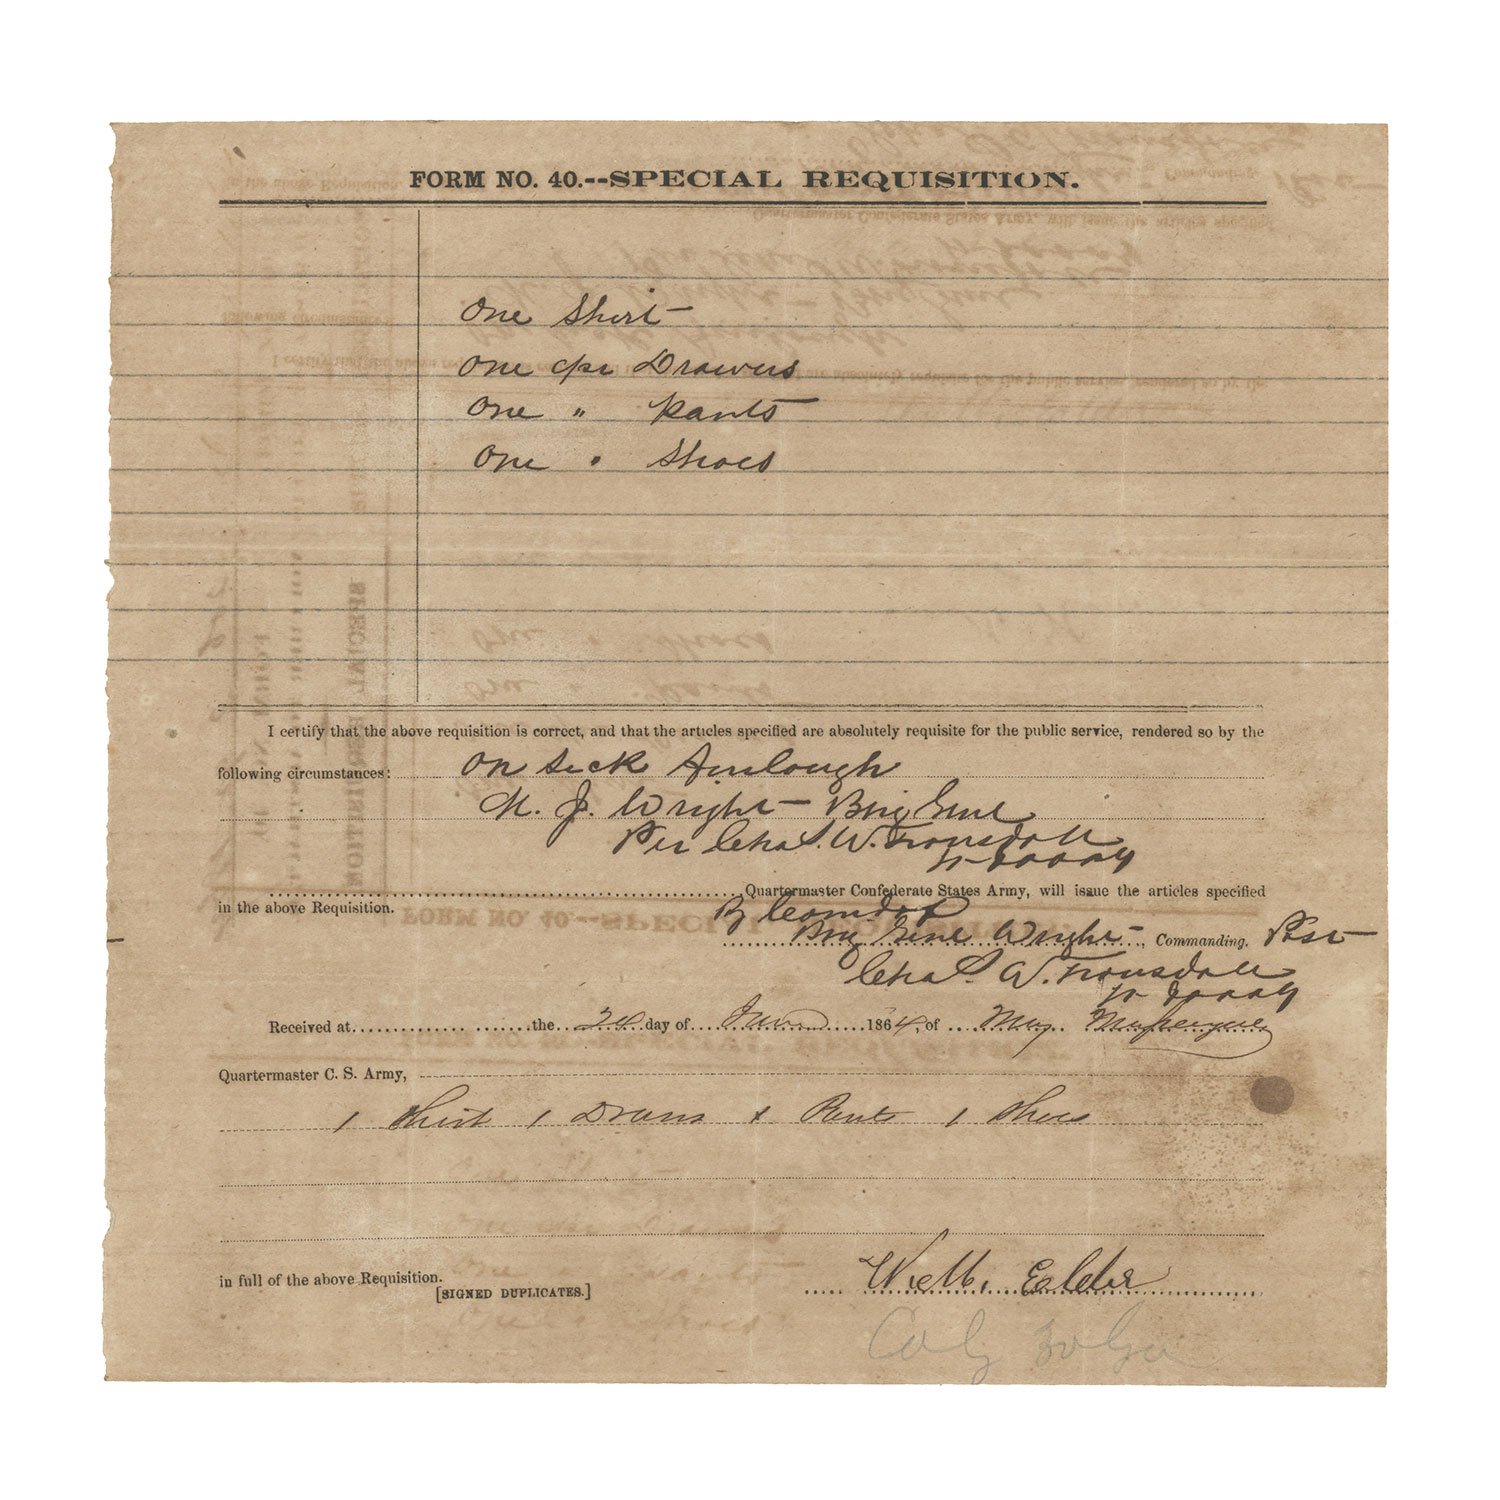 FORM NO. 40.--SPECIAL REQUISITION.
One Shirt
One pr Drawers
One " Pants
One " Shoes
I certify that the above requisition is correct, and that the articles specified are absolutely requisite for the public service, rendered so by the
following circumstances: On Sick Furlough
M. J. Wright Brig Genl
Per Chas. W. Trousdale
Quartermaster Confederate States Army, will issue the articles specified
in the above Requisition.
By Comd of
Brig Genl Wright, Commanding. Post
Chas. W. Trousdale
Received at the 24 day of June 1864, of Maj.
Quartermaster C. S. Army,
1 Shirt 1 Drawrs 1 Pants 1 Shoes
in full of the above Requisition.
[SIGNED DUPLICATES.]
Elder
Co G 30 Ga